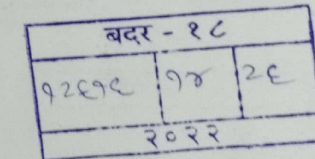 बदर - १८
१२६१६ १४ २६
२०२२